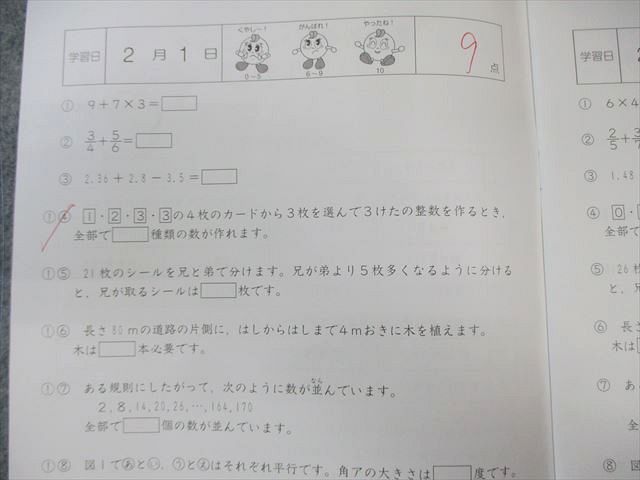 学習日 2月1日 くやし〜! 0〜5 がんばれ! 6〜9 やったね! 10 9点
① 9+7×3=□
② 3/4+5/6=□
③ 2.36+2.8-3.5=□
①④ 1・2・3・3の4枚のカードから3枚を選んで3けたの整数を作るとき,
全部で□種類の数が作れます。
①⑤ 21枚のシールを兄と弟で分けます。兄が弟より5枚多くなるように分ける
と,兄が取るシールは□枚です。
①⑥ 長さ80mの道路の片側に,はしからはしまで4mおきに木を植えます。
木は□本必要です。
①⑦ ある規則にしたがって,次のように数が並んでいます。
なら
2,8,14,20,26,…,164,170
全部で□個の数が並んでいます。
①⑧ 図1であとい,うとえはそれぞれ平行です。角アの大きさは□度です。
学習日
① 6×4
② 2/5+
③ 1.48
④ 0・
全部
⑤ 26枚
と,兄
⑥ 長さ
木は
⑦ ある
全
⑧ 図